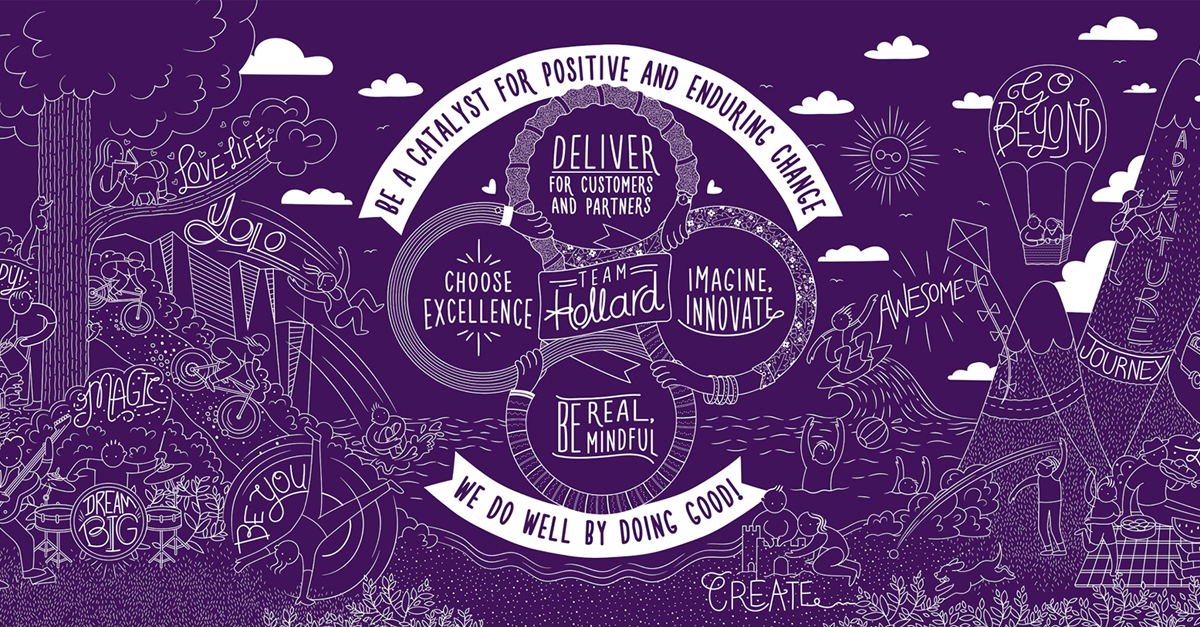 BE A CATALYST FOR POSITIVE AND ENDURING CHANGE
DELIVER
FOR CUSTOMERS
AND PARTNERS
CHOOSE
EXCELLENCE
TEAM
Hollard
IMAGINE,
INNOVATE
BE REAL,
MINDFUL
WE DO WELL BY DOING GOOD!
LOVE LIFE
YOLO
MAGIC
DREAM
BIG
BE YOU
AWESOME
GO
BEYOND
ADVENTURE
JOURNEY
CREATE